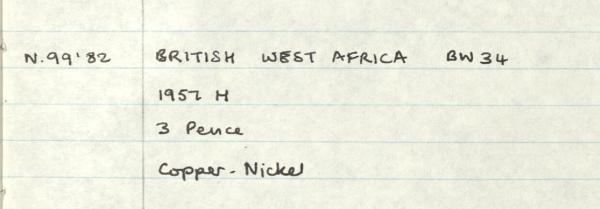 N.99'82 BRITISH WEST AFRICA BW34
1957 H
3 Pence
Copper-Nickel